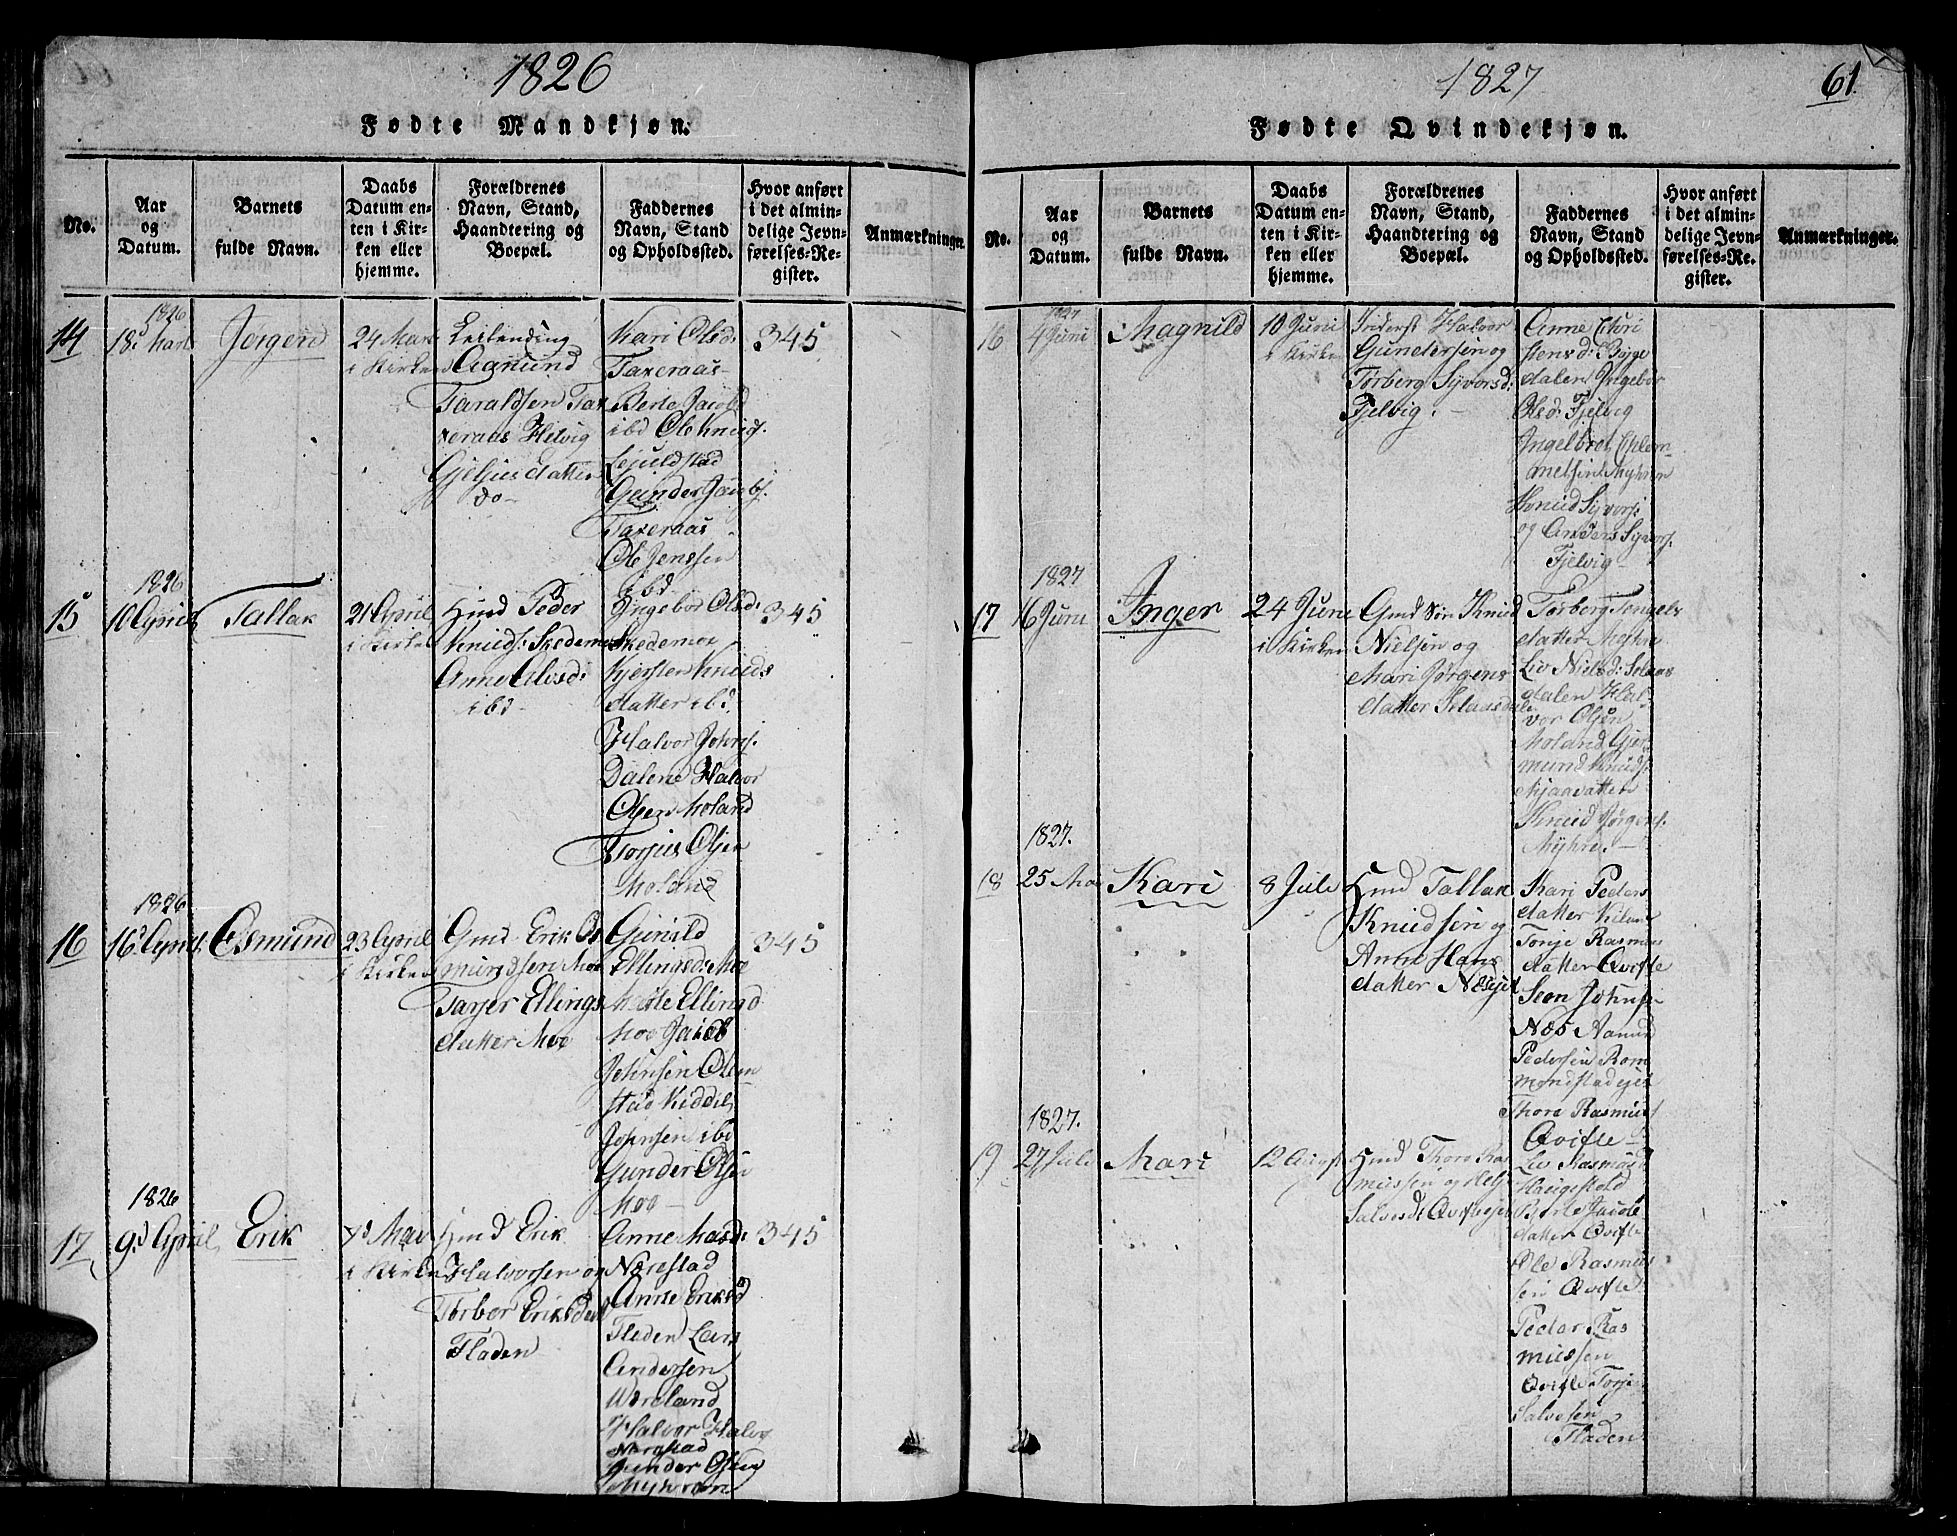 1826
Fødte Mandkjøn.
No.
Aar
og
Datum.
Barnets
fulde Navn.
Daabs
Datum en-
ten i Kir-
ken eller
hjemme.
Forældrenes
Navn, Stand,
Haandtering og
Boepæl.
Faddernes
Navn, Stand
og Opholdssted.
Hvor anført
i det almin-
delige Jevn-
førelses-Re-
gister.
Anmærkninger.
14
1826
18d Marts
Jørgen
24 Mars
i Kirken
Leilending
Aamund
Taraldsen Tax
eraas Helvig
Gjeljus datter
do
Kari Olsd:
Taxeraas
Berte Jacobd
ibd Ole Knuds.
Lejuldstad
Gunder Jacobs.
Taxeraas
Ole Jenssen
ibd
345
15
1826
10 April
Tallak
21 April
i Kirken
Hmd Peder
Knuds: Skedemoe
Anne Olvsd:
ibd
Ingebor Olsd:
Skedemoe
Kjersten Knuds
datter ibd.
Halvor Johns.
Dalene Halvor
Olsen Moland
Torjus Olsen
Moland
345
16
1826
16d April
Osmund
23 April
i Kirken
Gmd Erik Os
mundsen Moe
Tarjer Ellings
datter Moe
Gunild
Ellingsd: Moe
Marte Ellingsd
Moe Jacob
Johnsen Olim
stad Kiddil
Johnsen ibd
Gunder Olsen
Moe
345
17
1826
9d April
Erik
7d Mai
i Kirken
Hmd Erik
Halvorsen og
Torbor Eriksdat
Fladen
Anne Madsd:
Nærestad
Anne Eriksd
Fladen Lars
Andersen
Woreland
Halvor Halv
Nærestad
Gunder Olsen
Myhren
345
1827
61
Fødte Qvindekjøn.
No.
Aar
og
Datum.
Barnets
fulde Navn.
Daabs
Datum en-
ten i Kir-
ken eller
hjemme.
Forældrenes
Navn, Stand,
Haandtering og
Boepæl.
Faddernes
Navn, Stand
og Opholdssted.
Hvor anført
i det almin-
delige Jevn-
førelses-Re-
gister.
Anmærkninger.
16
1827
4 Juni
Magnild
10 Juni
i Kirken
Halvor
Gundersen og
Torberg Syvorsd:
Fjelvig.
Anne Chri
stensd: Bøge
dalen Ingebor
Olsd: Fjelvig
Ingelbret Clem
metsen Myhren
Knud Syvors.
og Anders Syvors.
Fjelvig
17
1827
16 Juni
Inger
24 Juni
i Kirken
Gmd Søn Knud
Nielsen og
Mari Jørgens
datter Selaasdale
Torberg Tengels
datter Myhre
Liv Nielsd: Selaas
dalen Hal
vor Olsen
Moland Gjer
mund Knuds.
Mjaavatten
Knud Jørgens.
Myhre.
18
1827.
25 Mai
Kari
8 Juli
Hmd Tallak
Knudsen og
Anne Hans
datter Næsjet
Kari Peders
datter
Tonje Rasmus
datter Qvifte
Seon Johnsen
Næs Aamund
Pedersen Rom
mundstadejet
Thore Rasmus.
Qvifte
19
1827.
27 Juli
Mari
12 August
Hmd Thore Ras
mussen og Helje
Salvesd: Qviftejet
Liv Rasmusd
Haugestold
Berte Jacobs
datter Qvifte
Ole Rasmus
sen Qvifte
Peder Ras
mussen
Qvifte Torje
Salvesen
Fladen